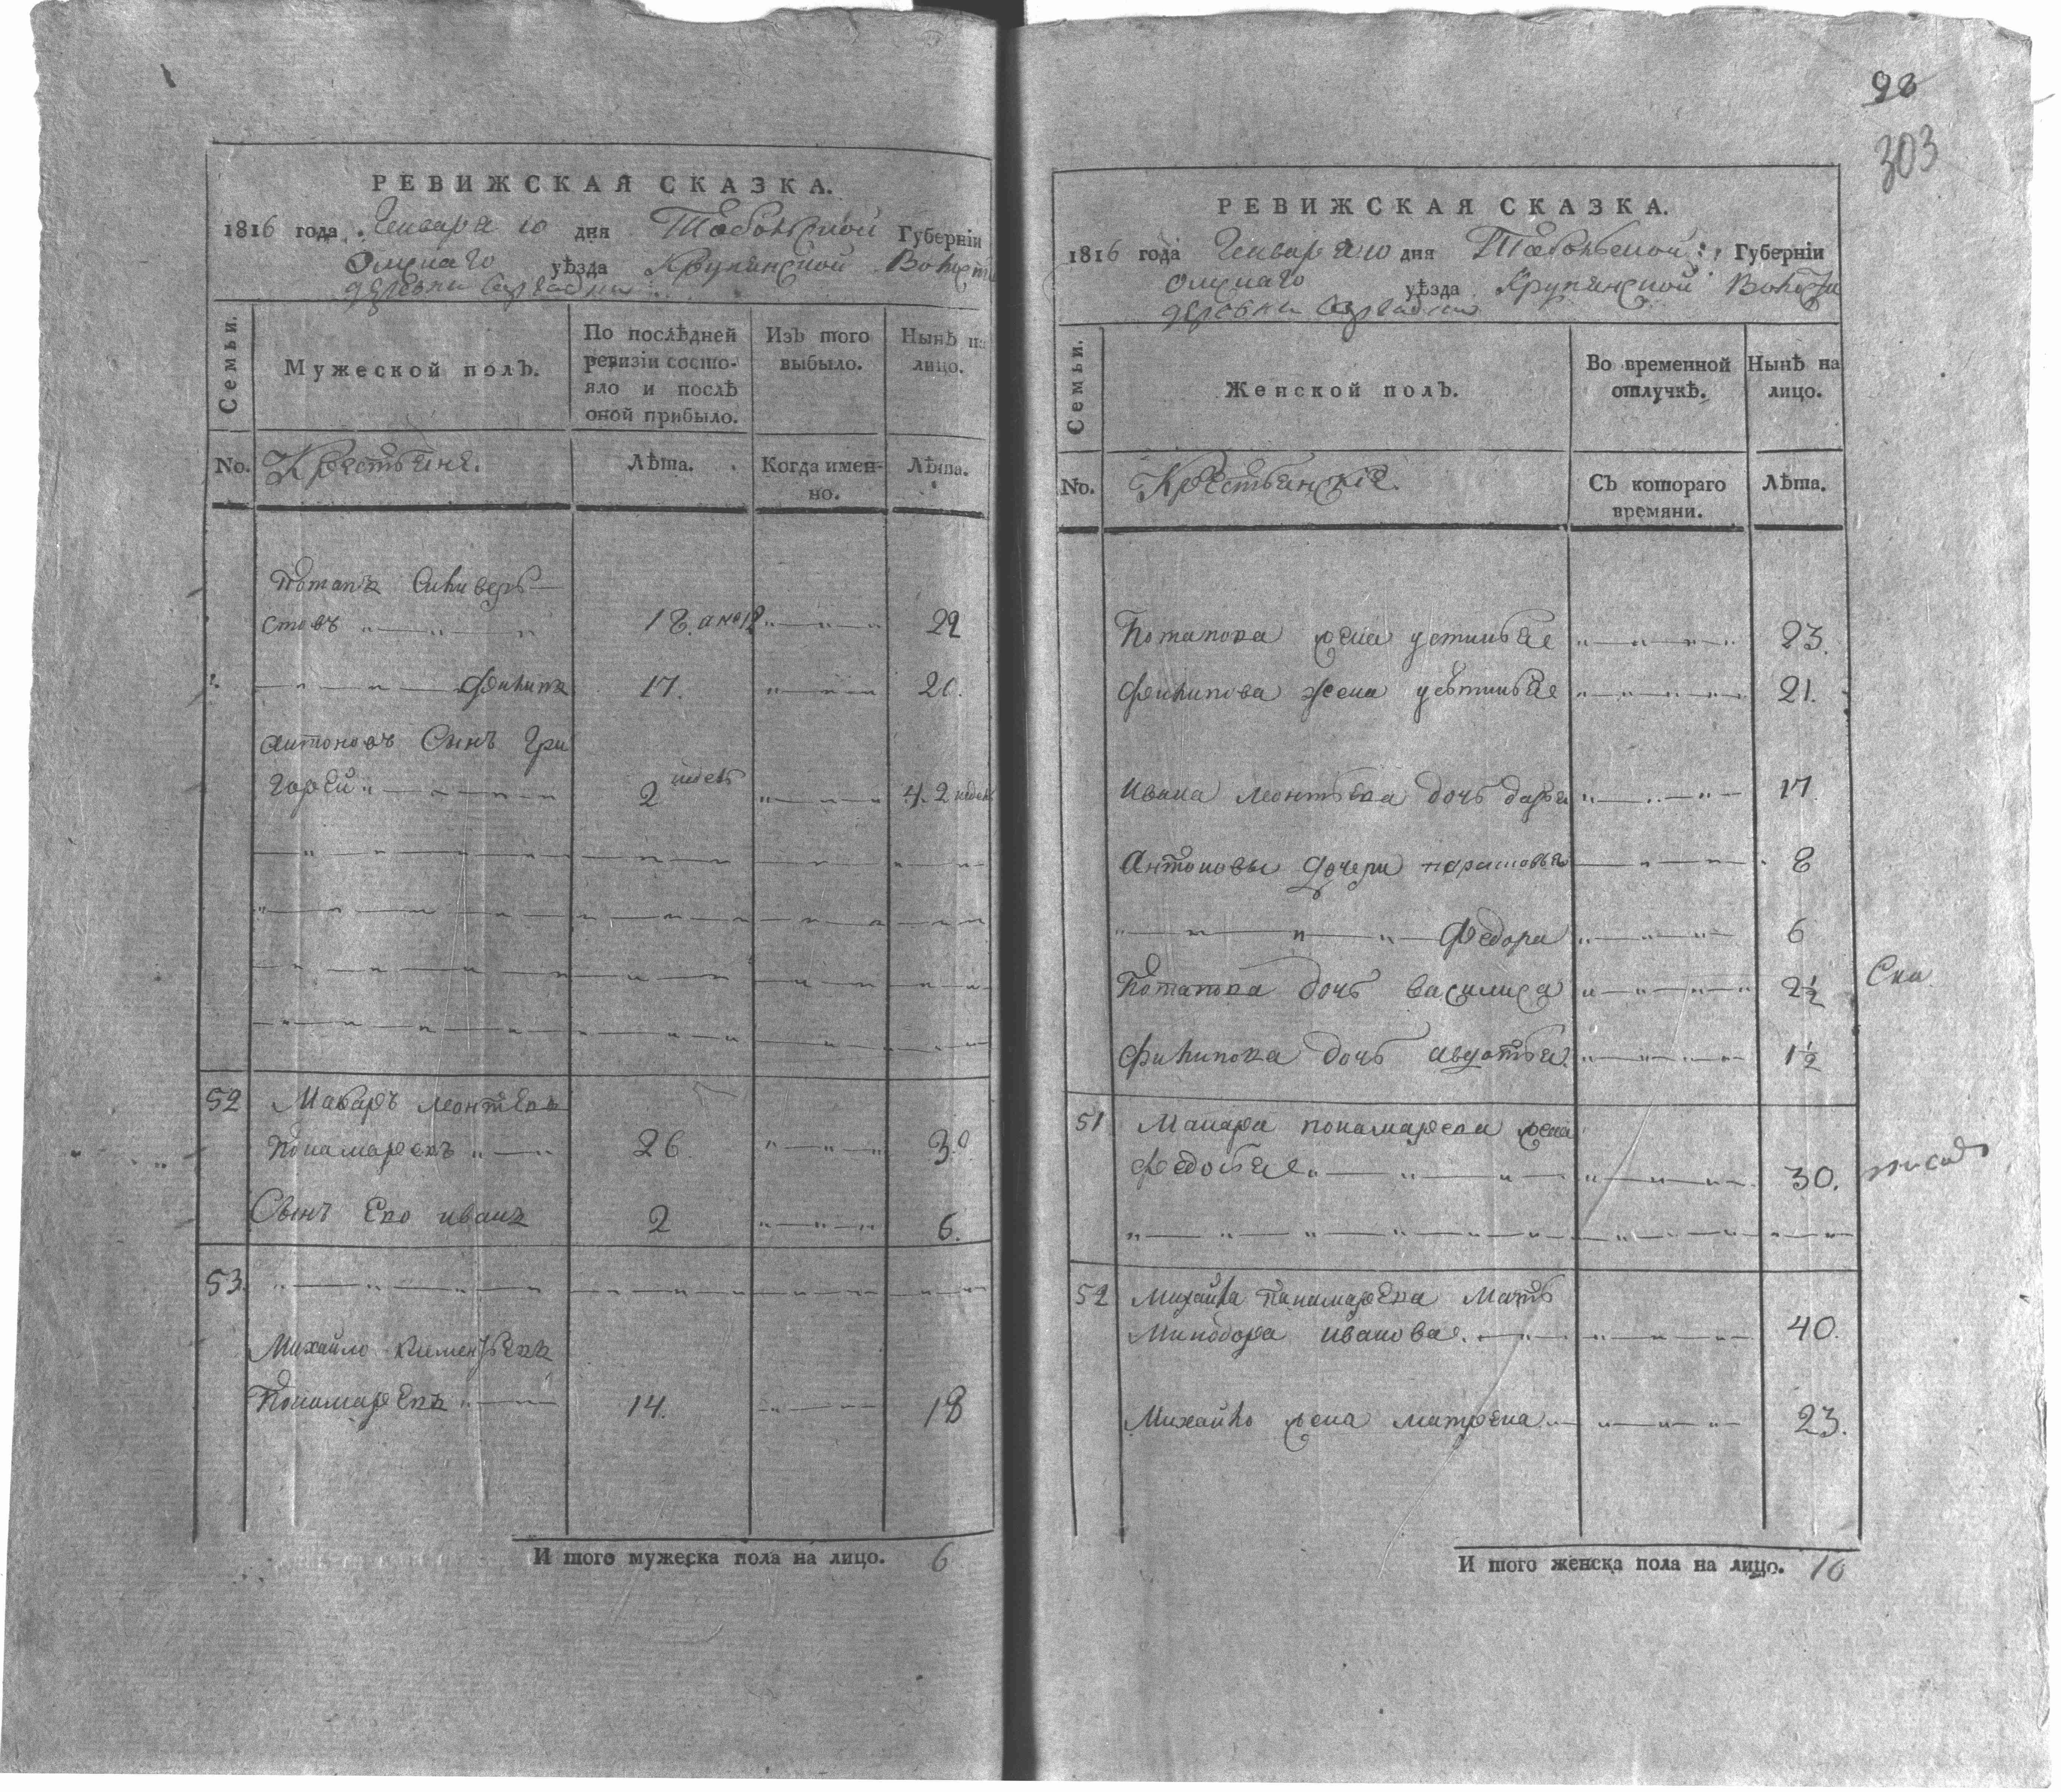 РЕВИЖСКАЯ СКАЗКА.
1816 года Генваря 10 дня Тобольской Губерніи
Омскаго уѣзда Крупянской Волости
деревни
Семьи.
Мужеской полъ.
По послѣдней ревизіи состояло и послѣ оной прибыло.
Изъ того выбыло.
Нынѣ на лицо.
No. Крестьяне.
Лѣта.
Когда именно.
Лѣта.
Потапъ Силивер-
стовъ 18 22
Филипъ 17. 20.
Антоновъ Сынъ Гри
горей 2 недель 4. 2 недел
52 Макаръ Леонтьевъ
Пономаревъ 26 30
Сынъ Его Иванъ 2 6.
53.
Михайло Климентьевъ
Пономаревъ 14. 18
И того мужеска пола на лицо. 6
98
303
РЕВИЖСКАЯ СКАЗКА.
1816 года Генваря 10 дня Тобольской Губерніи
Омскаго уѣзда Крупянской Волости
деревни
Семьи.
Женской полъ.
Во временной отлучкѣ.
Нынѣ на лицо.
No. Крестьянскіе.
Съ котораго времяни.
Лѣта.
Потапова жена Устинья 23.
Филипова жена Устинья 21.
Ивана Леонтьева дочь Дарья 17
Антоновы дочери Парасковья 8
Федора 6
Потапова дочь Василиса 2½
Филипова дочь Авдотья 1½
51 Макара Пономарева жена
Федосья 30.
52 Михайла Панамарева Мать
Минодора Иванова 40.
Михайло жена Матрена 23.
И того женска пола на лицо. 10